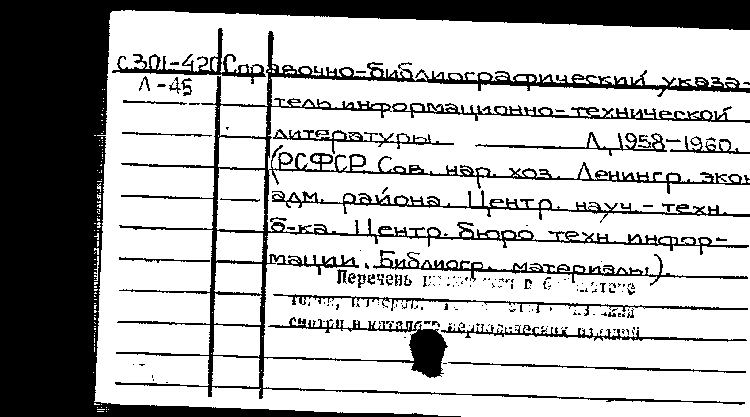 с.301-420 Справочно-библиографический указа-
Л-45 тель информационно-технической
литературы. Л., 1958-1960.
(РСФСР. Сов. нар. хоз. Ленингр. экон.
адм. района. Центр. науч.-техн.
б-ка. Центр. бюро техн. инфор-
мации. Библиогр. материалы).
Перечень в
томов,
смотри в каталоге периодических изданий